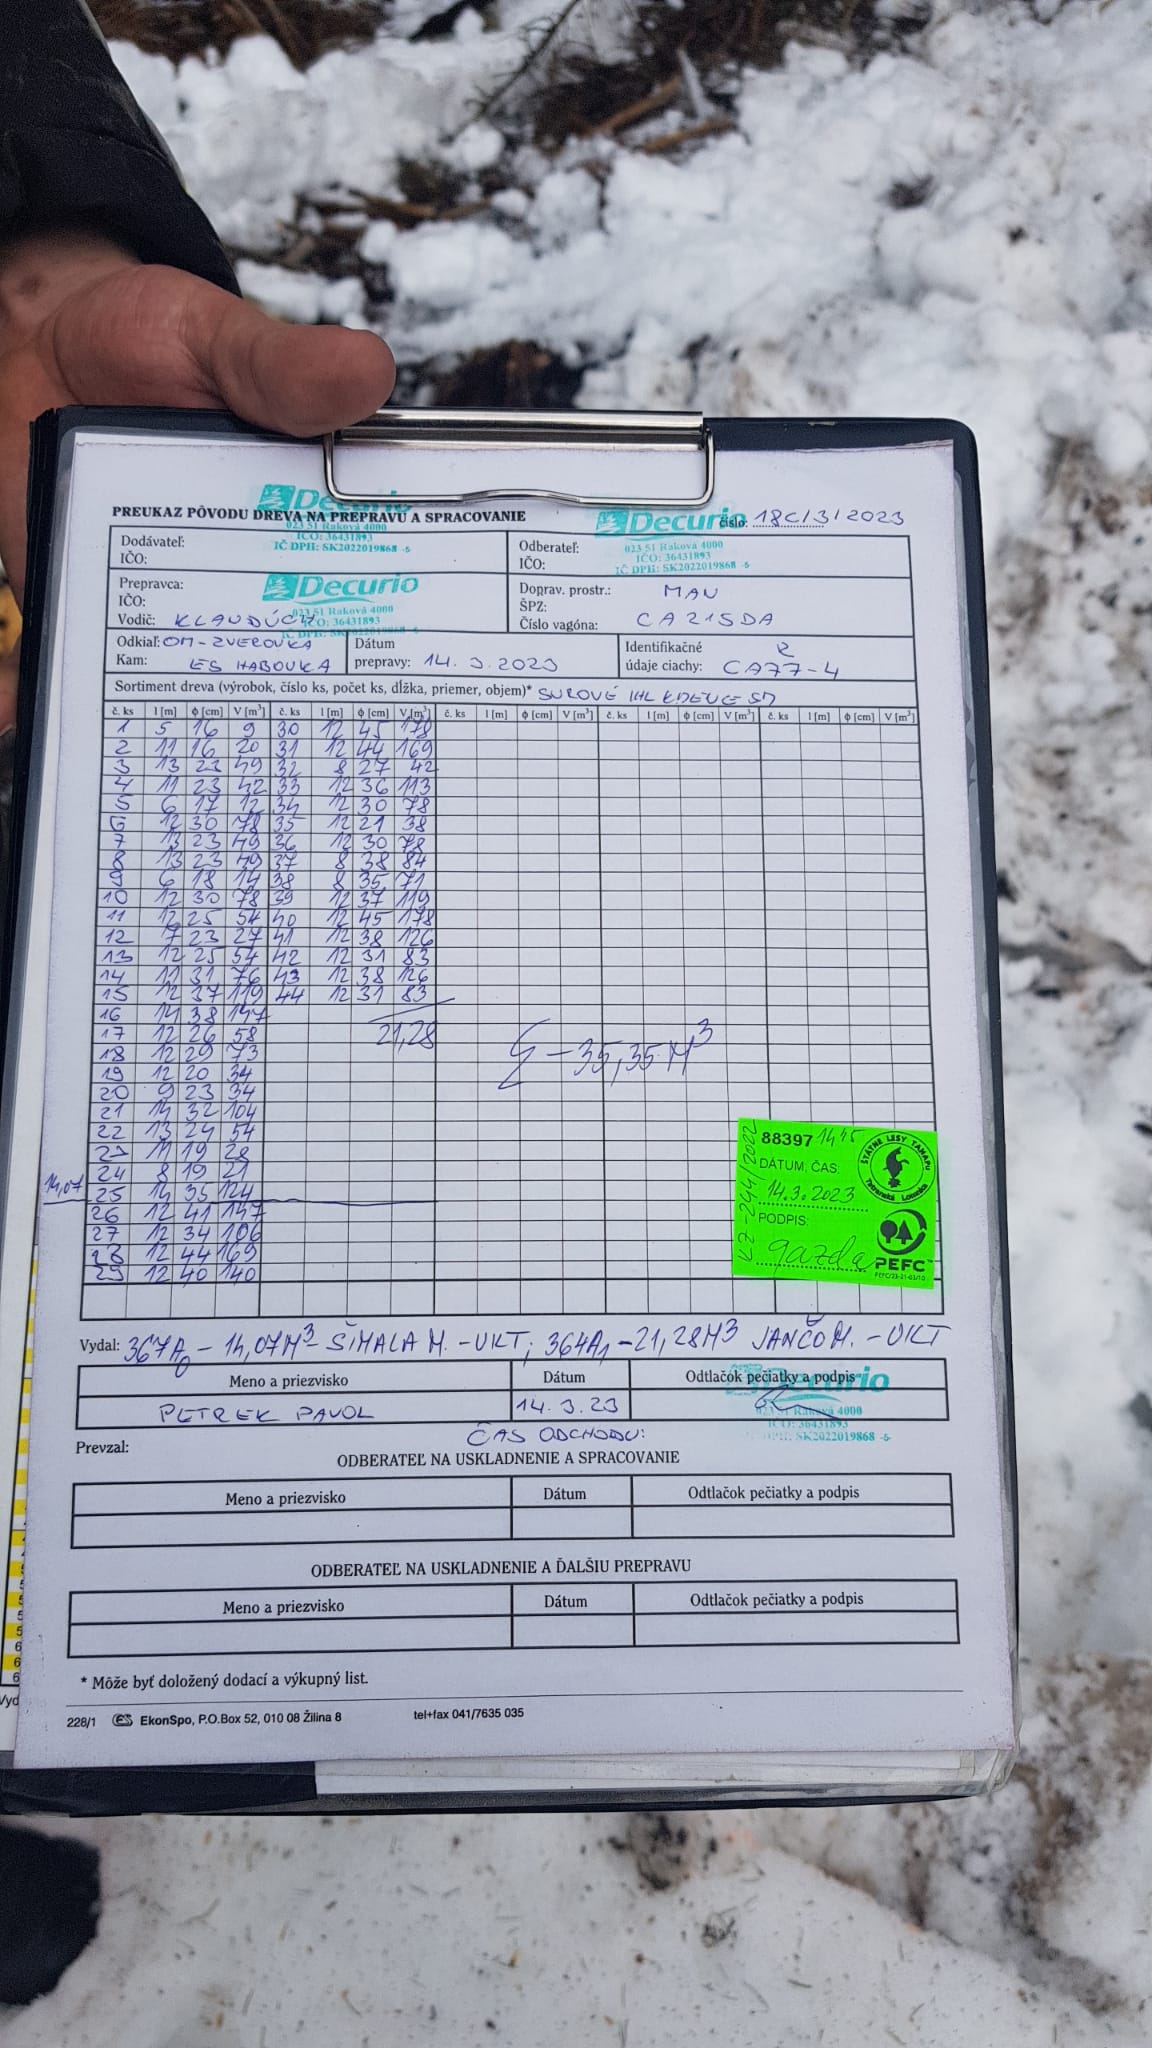 Decurio
PREUKAZ PÔVODU DREVA NA PREPRAVU A SPRACOVANIE
023 51 Raková 4000
IČO: 36431893
IČ DPH: SK2022019868 -5-
Decurio
číslo: 18C/3/2023
023 51 Raková 4000
IČO: 36431893
IČ DPH: SK2022019868 -5-
Dodávateľ:
IČO:
Odberateľ:
IČO:
Prepravca: Decurio
IČO: 023 51 Raková 4000
IČO: 36431893
Vodič: KLAUDÚCH
Doprav. prostr.: MAN
ŠPZ:
Číslo vagóna: CA215DA
Odkiaľ: OM-ZVEROVKA
Kam: ES HABOVKA
Dátum
prepravy: 14. 3. 2023
Identifikačné R
údaje ciachy: CA77-4
Sortiment dreva (výrobok, číslo ks, počet ks, dĺžka, priemer, objem)* SUROVÉ IHL KMENE SD
č. ks l [m] ϕ [cm] V [m³] č. ks l [m] ϕ [cm] V [m³] č. ks l [m] ϕ [cm] V [m³] č. ks l [m] ϕ [cm] V [m³] č. ks l [m] ϕ [cm] V [m³]
1 5 16 9 30 12 45 178
2 11 16 20 31 12 44 169
3 13 23 49 32 8 27 42
4 11 23 42 33 12 36 113
5 6 17 12 34 12 30 78
6 12 30 78 35 12 21 38
7 13 23 49 36 12 30 78
8 13 23 49 37 8 38 84
9 6 18 14 38 8 35 71
10 12 30 78 39 12 37 119
11 12 25 54 40 12 45 178
12 7 23 27 41 12 38 126
13 12 25 54 42 12 31 83
14 11 31 76 43 12 38 126
15 12 37 119 44 12 31 83
16 14 38 147
17 12 26 58 21,28
18 12 29 73 Σ - 35,35 M³
19 12 20 34
20 9 23 34
21 14 32 104
22 13 24 54
23 11 19 28
24 8 19 21
14,07
25 14 35 124
26 12 41 147
27 12 34 106
28 12 44 169
29 12 40 140
88397 1445
DÁTUM, ČAS:
14.3.2023
PODPIS:
gazda
KZ-244/2022
ŠTÁTNE LESY TANAPu
Tatranská Lomnica
PEFC
PEFC/23-21-03/10
Vydal: 367A0 - 14,07M³ - ŠIMALA M. - UKT; 364A1 - 21,28M³ JANČO M. - UKT
Meno a priezvisko Dátum Odtlačok pečiatky a podpis
Decurio
PETREK PAVOL 14. 3. 23
023 51 Raková 4000
IČO: 36431893
IČ DPH: SK2022019868 -5-
Prevzal:
ČAS ODCHODU:
ODBERATEĽ NA USKLADNENIE A SPRACOVANIE
Meno a priezvisko Dátum Odtlačok pečiatky a podpis
ODBERATEĽ NA USKLADNENIE A ĎALŠIU PREPRAVU
Meno a priezvisko Dátum Odtlačok pečiatky a podpis
* Môže byť doložený dodací a výkupný list.
228/1 ES EkonSpo, P.O.Box 52, 010 08 Žilina 8 tel+fax 041/7635 035